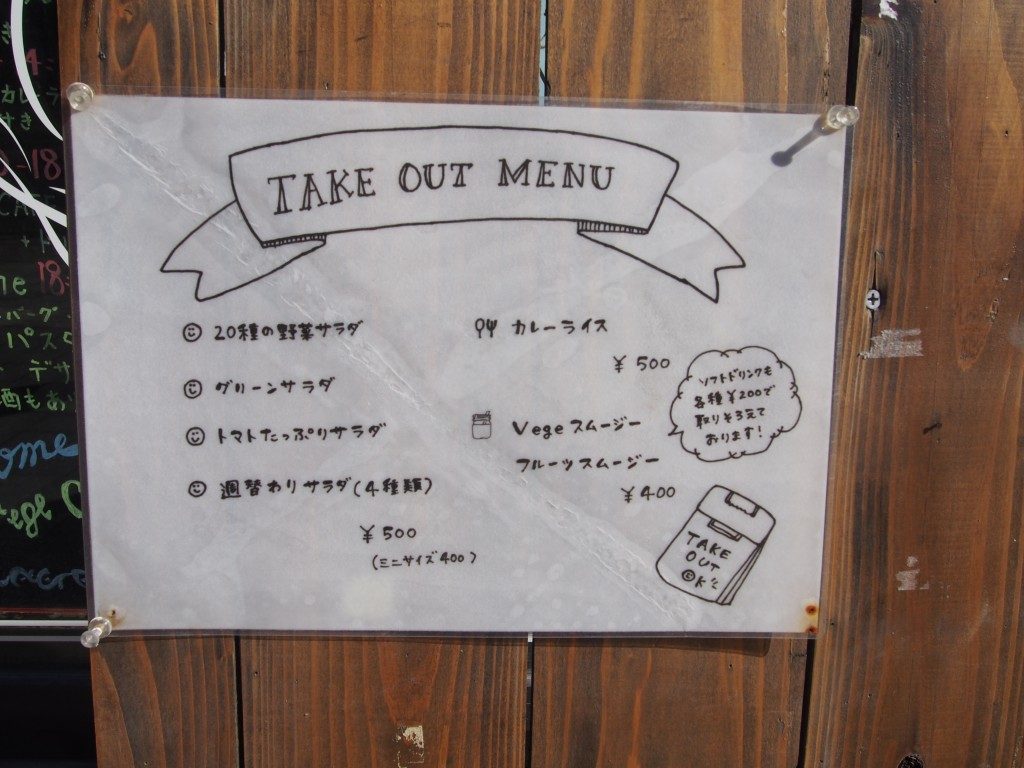 TAKE OUT MENU
20種の野菜サラダ
グリーンサラダ
トマトたっぷりサラダ
週替わりサラダ(4種類)
¥500
(ミニサイズ400)
カレーライス
¥500
Vegeスムージー
フルーツスムージー
¥400
ソフトドリンクも
各種¥200で
取りそろえて
おります!
TAKE
OUT
OK!
カレーラ
-18
CAFE
18:
バーグ
パスタ
デザ
酒もお
ome
ege